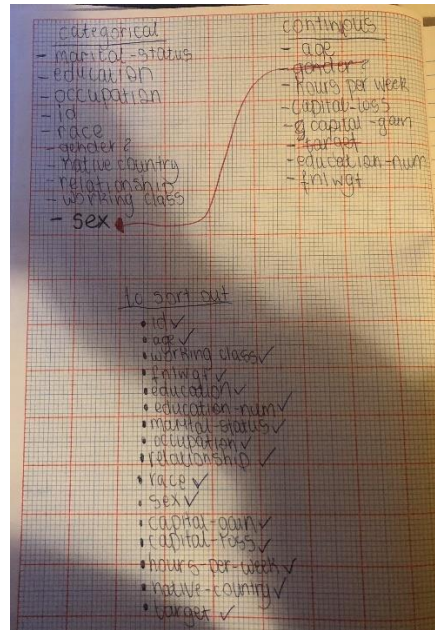 categorical
- marital-status
- education
- occupation
- id
- race
- gender?
- native country
- relationship
- working class
- sex
continuous
- age
- gender?
- hours per week
- capital-loss
- g capital-gain
- target
- education-num
- fnlwgt
to sort out
• id ✓
• age ✓
• working class ✓
• fnlwgt ✓
• education ✓
• education-num ✓
• marital-status ✓
• occupation ✓
• relationship ✓
• race ✓
• sex ✓
• capital-gain ✓
• capital-loss ✓
• hours-per-week ✓
• native-country ✓
• target ✓